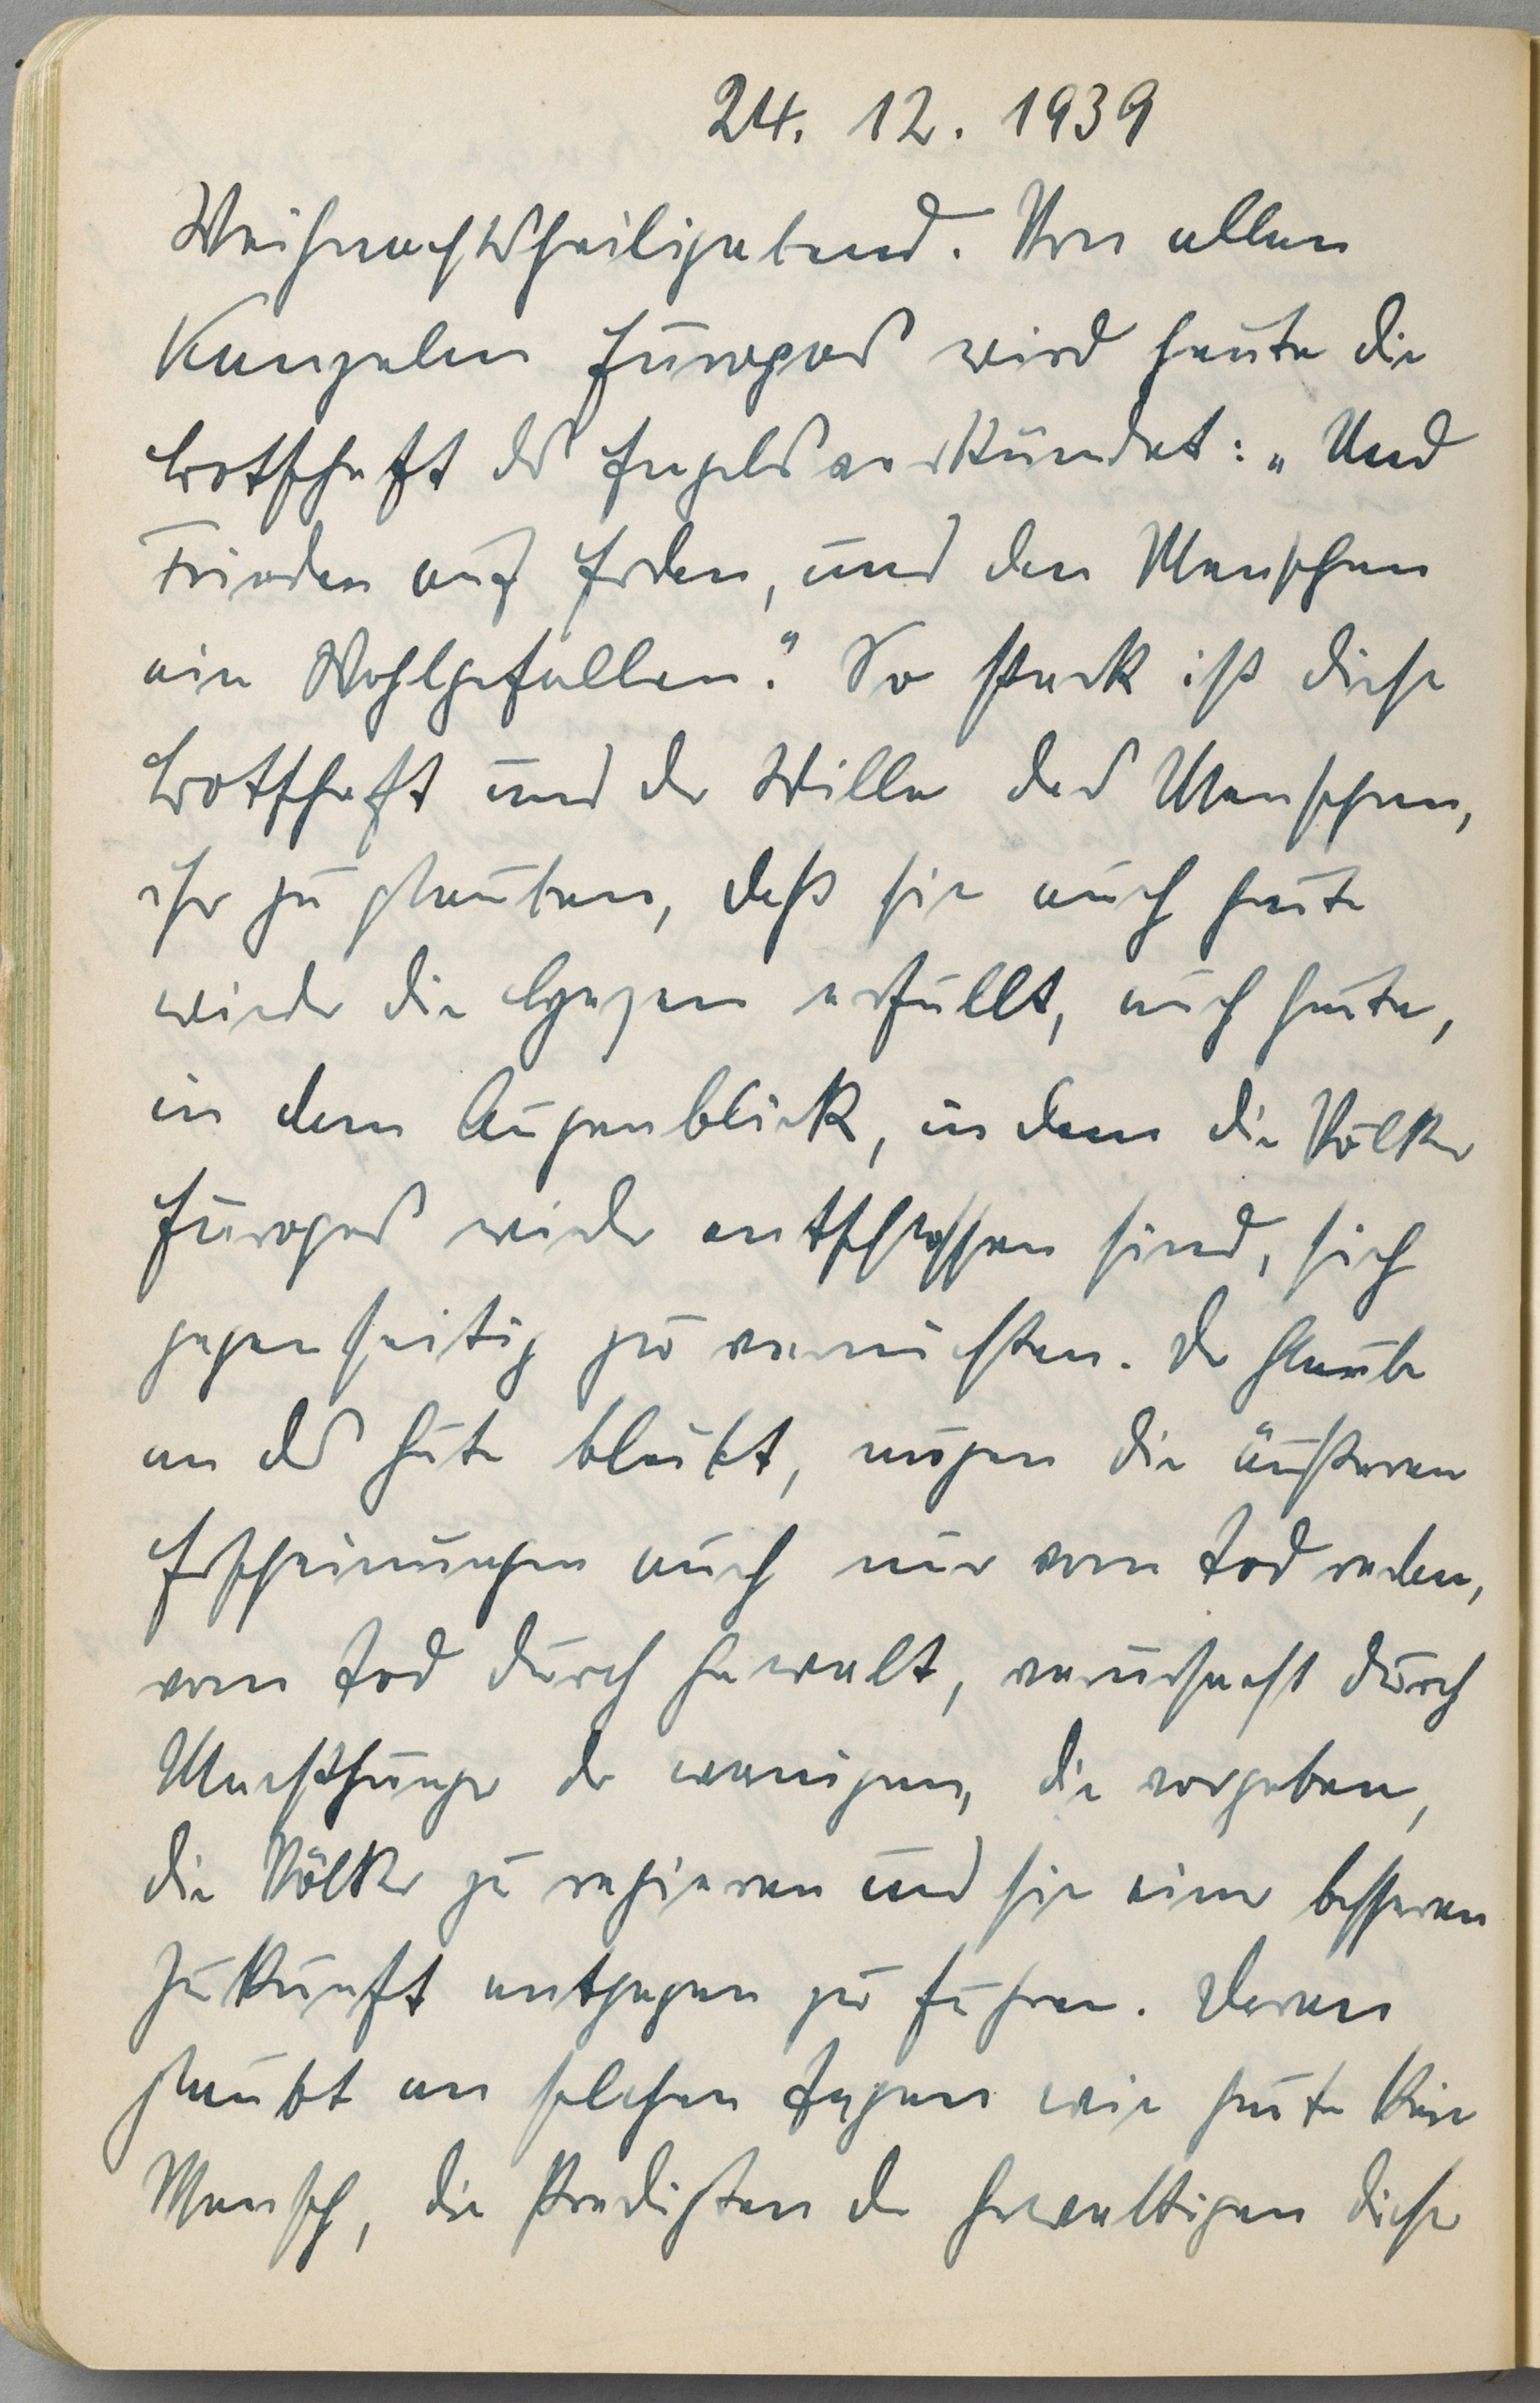 24. 12. 1939
Weihnachtsheiligabend. Von allen
Kanzeln Europas wird heute die
Botschaft des Engels verkündet: „Und
Frieden auf Erden, und den Menschen
ein Wohlgefallen." So stark ist diese
Botschaft und der Wille des Menschen,
ihr zu glauben, daß sie auch heute
wieder die Herzen erfüllt, auch heute,
in dem Augenblick, in dem die Völker
Europas wieder entschlossen sind, sich
gegenseitig zu vernichten. Der Glaube
an das Gute bleibt, mögen die äußeren
Erscheinungen auch nur vom Tod reden,
vom Tod durch Gewalt, verursacht durch
Machthunger der wenigen, die vorgeben,
die Völker zu regieren und sie einer besseren
Zukunft entgegen zu führen. Daran
glaubt an solchen Tagen wie heute kein
Mensch, die Predigten der Gewaltigen dieser